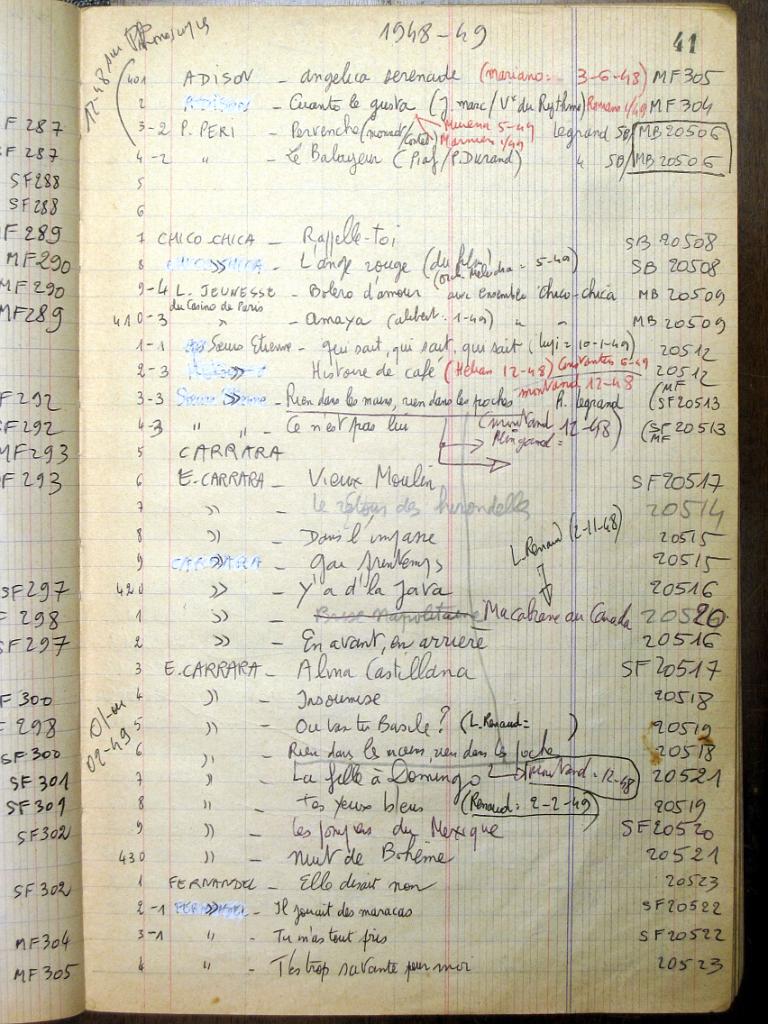 F 287
SF 287
SF288
SF288
F289
MF290
MF290
MF289
F292
SF292
MF293
F 293
SF297
F 298
SF297
F 300
F 298
SF 300
SF 301
SF 301
SF302
SF 302
MF304
MF305
1948-49
41
12-48
401 ADISON - angelica serenade (mariano: 3-6-48) MF305
2 ADISON - Cuanto le gusta (J. marc/Vve du Rythme) Romans 1/49 MF304
3-2 P. PERI - Pervenche Murena 5-49 legrand SB/MB20506
Marnier 1/49
4-2 " - Le Balayeur (Piaf/P. Durand) " SB/MB20506
5
6
7 CHICO-CHICA - Rappelle-toi SB 20508
8 CHICO CHICA » - L'ange rouge (du film) SB 20508
(Orch. = 5-49)
9-4 L. JEUNESSE - Bolero d'amour avec ensemble chico-chica MB 20509
du Casino de Paris
410-3 " - amaya (alibert: 1-49) " " MB 20509
1-1 Soeurs Etienne - qui sait, qui sait, qui sait (= 10-1-49) 20512
2-3 » Histoire de café (Hélian 12-48) 6-49 20512
montand 12-48
3-3 » - Rien dans les mains, rien dans les poches R. legrand (MF SF20513
4-3 " " - Ce n'est pas lui (montand 12-48) (SF MF 20513
5 CARRARA
6 E.CARRARA - Vieux Moulin SF20517
7 » Le retour des hirondelles 20514
8 » - Dans l'impasse 20515
L. Renaud (2-11-48)
9 CARRARA » - gai printemps 20515
420 » - Y'a d'la Java 20516
1 » - Brise Napolitaine Ma cabane au Canada 20520
2 » - En avant, en arrière 20516
3 E.CARRARA - Alma Castillana SF20517
4 » - Insoumise 20518
01-
02-49
5 » - Ou vas tu Basile? (L. Renaud= ) 20519
6 » - Rien dans les mains, rien dans les poche 20518
7 » - La fille à Domingo montand: 12-48 20521
8 » - tes yeux bleus (Renaud: 2-2-49) 20519
9 » - les du Mexique SF20520
430 » - nuit de Bohème 20521
1 FERNANDEL - Elle disait non 20523
2-1 FERNANDEL » - Il jouait des maracas SF20522
3-1 " - Tu m'as tout pris SF20522
4 " - T'es trop savante pour moi 20523